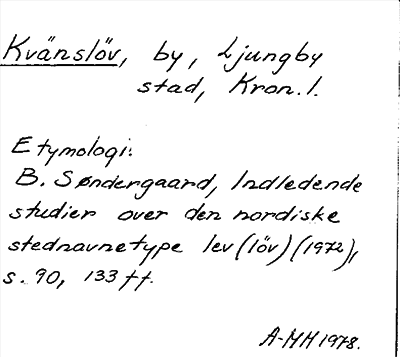 Kvänslöv, by, Ljungby
stad, Kron. l.
Etymologi:
B. Søndergaard, Indledende
studier over den nordiske
stednavnetype lev (löv) (1972),
s. 90, 133 ff.
A-MH 1978.